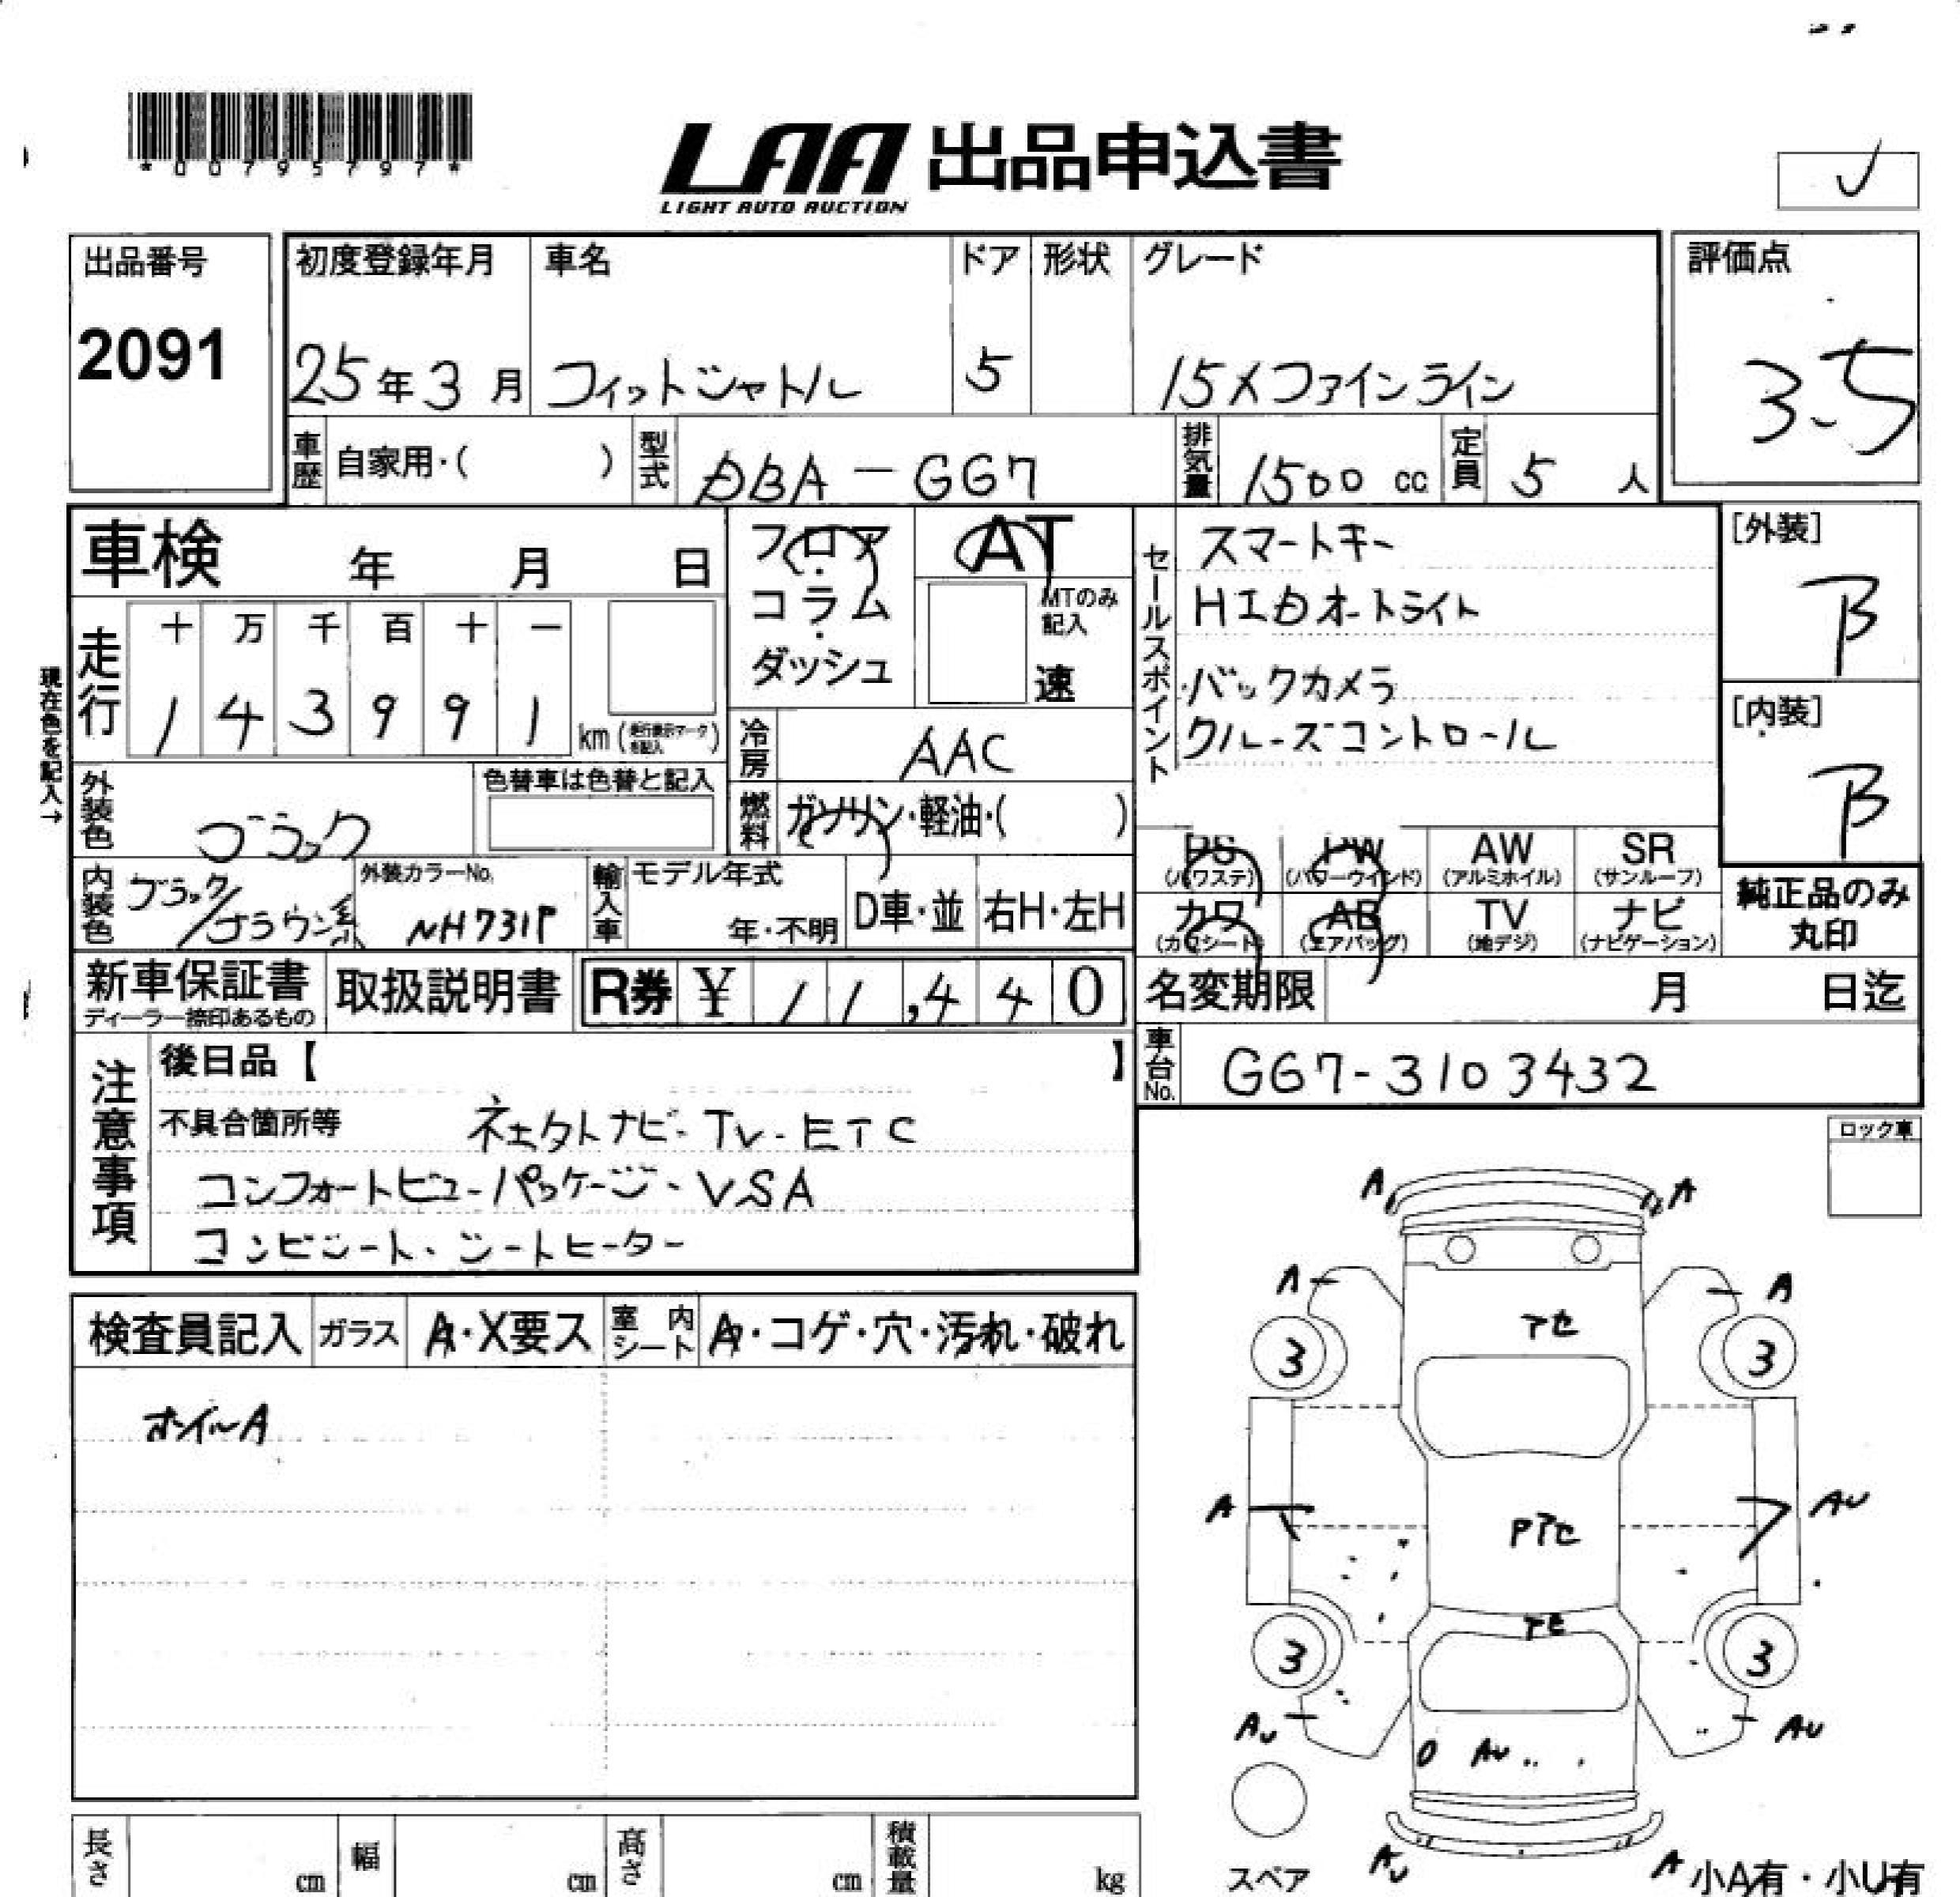 *0079579 7*
LAA 出品申込書
LIGHT AUTO AUCTION
出品番号
2091
初度登録年月 車名 ドア 形状 グレード
25年3月 フィットシャトル 5 15Xファインライン
評価点
3.5
車歴 自家用・( ) 型式 DBA-GG7 排気量 1500 cc 定員 5 人
車検 年 月 日
フロア・コラム・ダッシュ
AT
MTのみ記入
速
セールスポイント
スマートキー
HIDオートライト
バックカメラ
クルーズコントロール
[外装]
B
[内装]
B
現在色を記入→
走行 十 万 千 百 十 一
1 4 3 9 9 1 km (走行表示マークを記入)
冷房 AAC
外装色 ブラック 色替車は色替と記入
燃料 ガソリン・軽油・( )
内装色 ブラック/ブラウン系 外装カラーNo. NH731P
輸入車 モデル年式 年・不明 D車・並 右H・左H
PS (パワステ) PW (パワーウインド) AW (アルミホイル) SR (サンルーフ)
カワ (カワシート) AB (エアバッグ) TV (地デジ) ナビ (ナビゲーション)
純正品のみ
丸印
新車保証書 ディーラー捺印あるもの 取扱説明書 R券 ¥ 11,440
名変期限 月 日迄
車台No. GG7-3103432
注意事項
後日品【 】
不具合箇所等 ネェクトナビ-TV-ETC
コンフォートビューパッケージ-VSA
コンビシート・シートヒーター
ロック車
検査員記入 ガラス A・X要ス 室内シート A・コゲ・穴・汚れ・破れ
ホイールA
A A
A A
アセ
3 3
A AU
Pアセ
アセ
3 3
AU AU
AU
スペア
AU A 小A有・小U有
長さ cm 幅 cm 高さ cm 積載量 kg